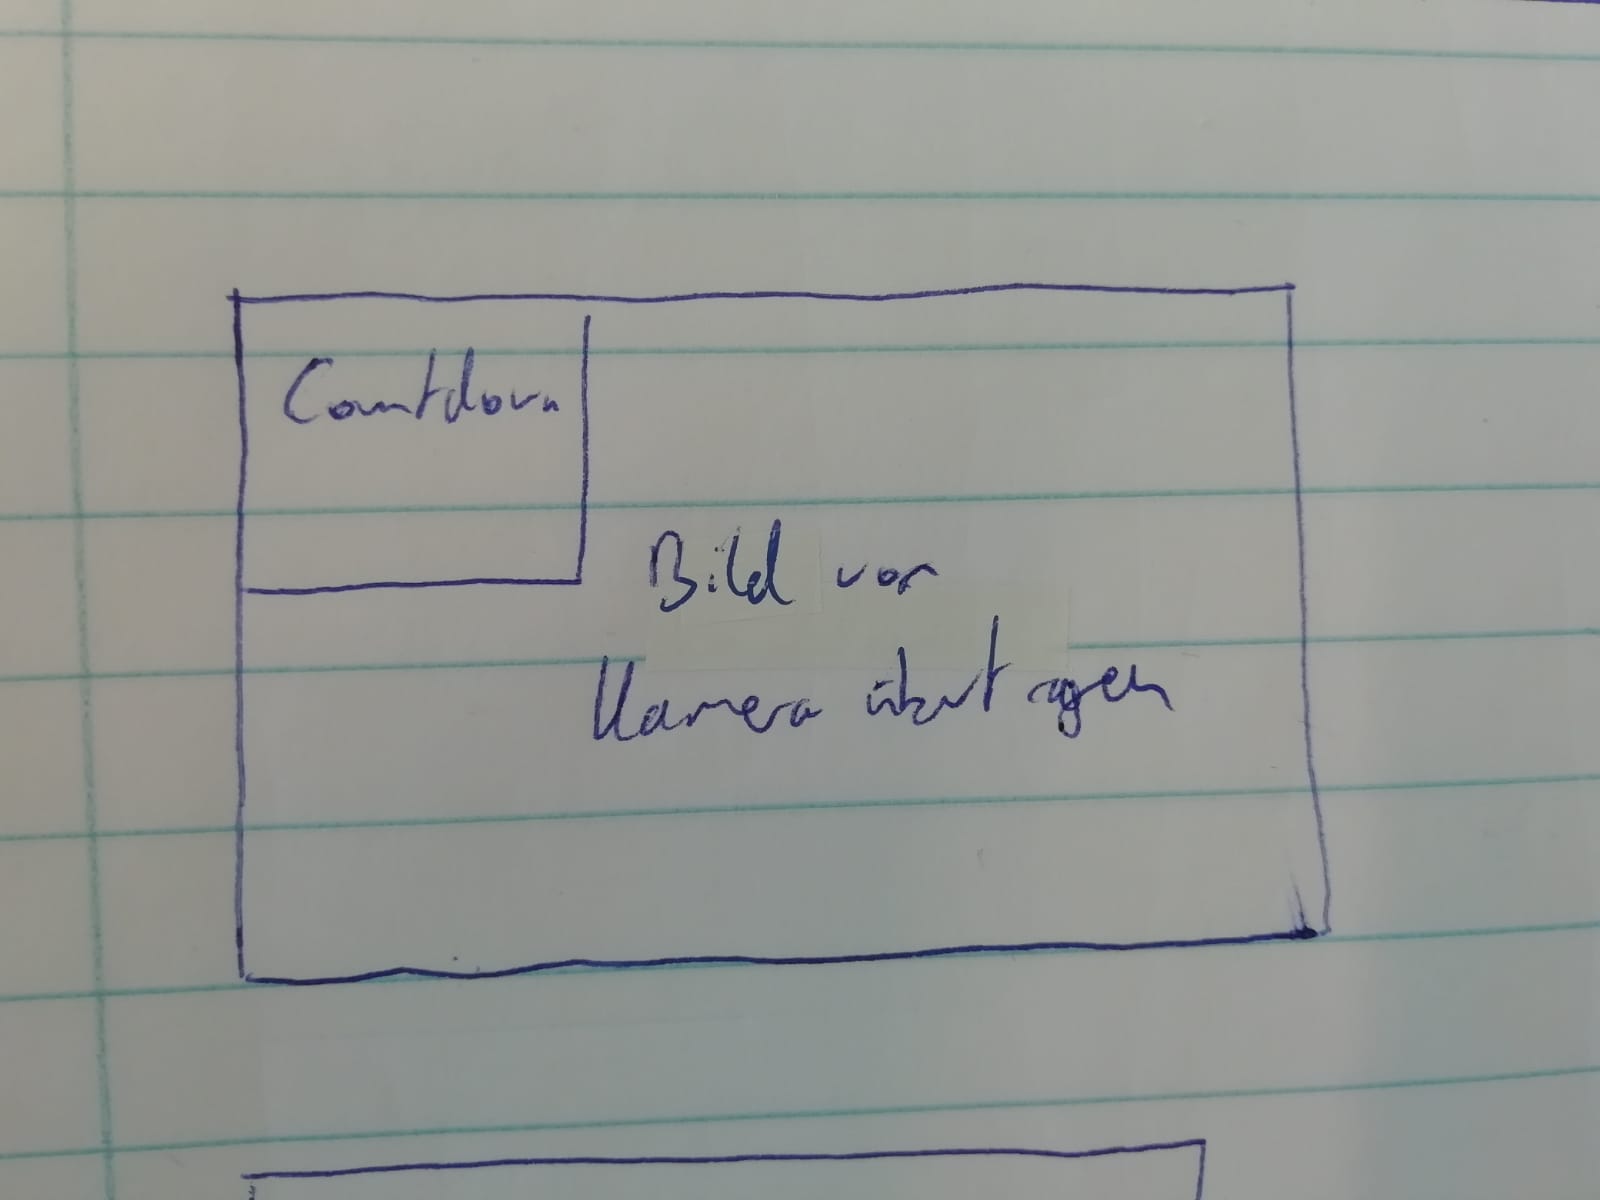 Countdown
Bild von
Kamera übertragen